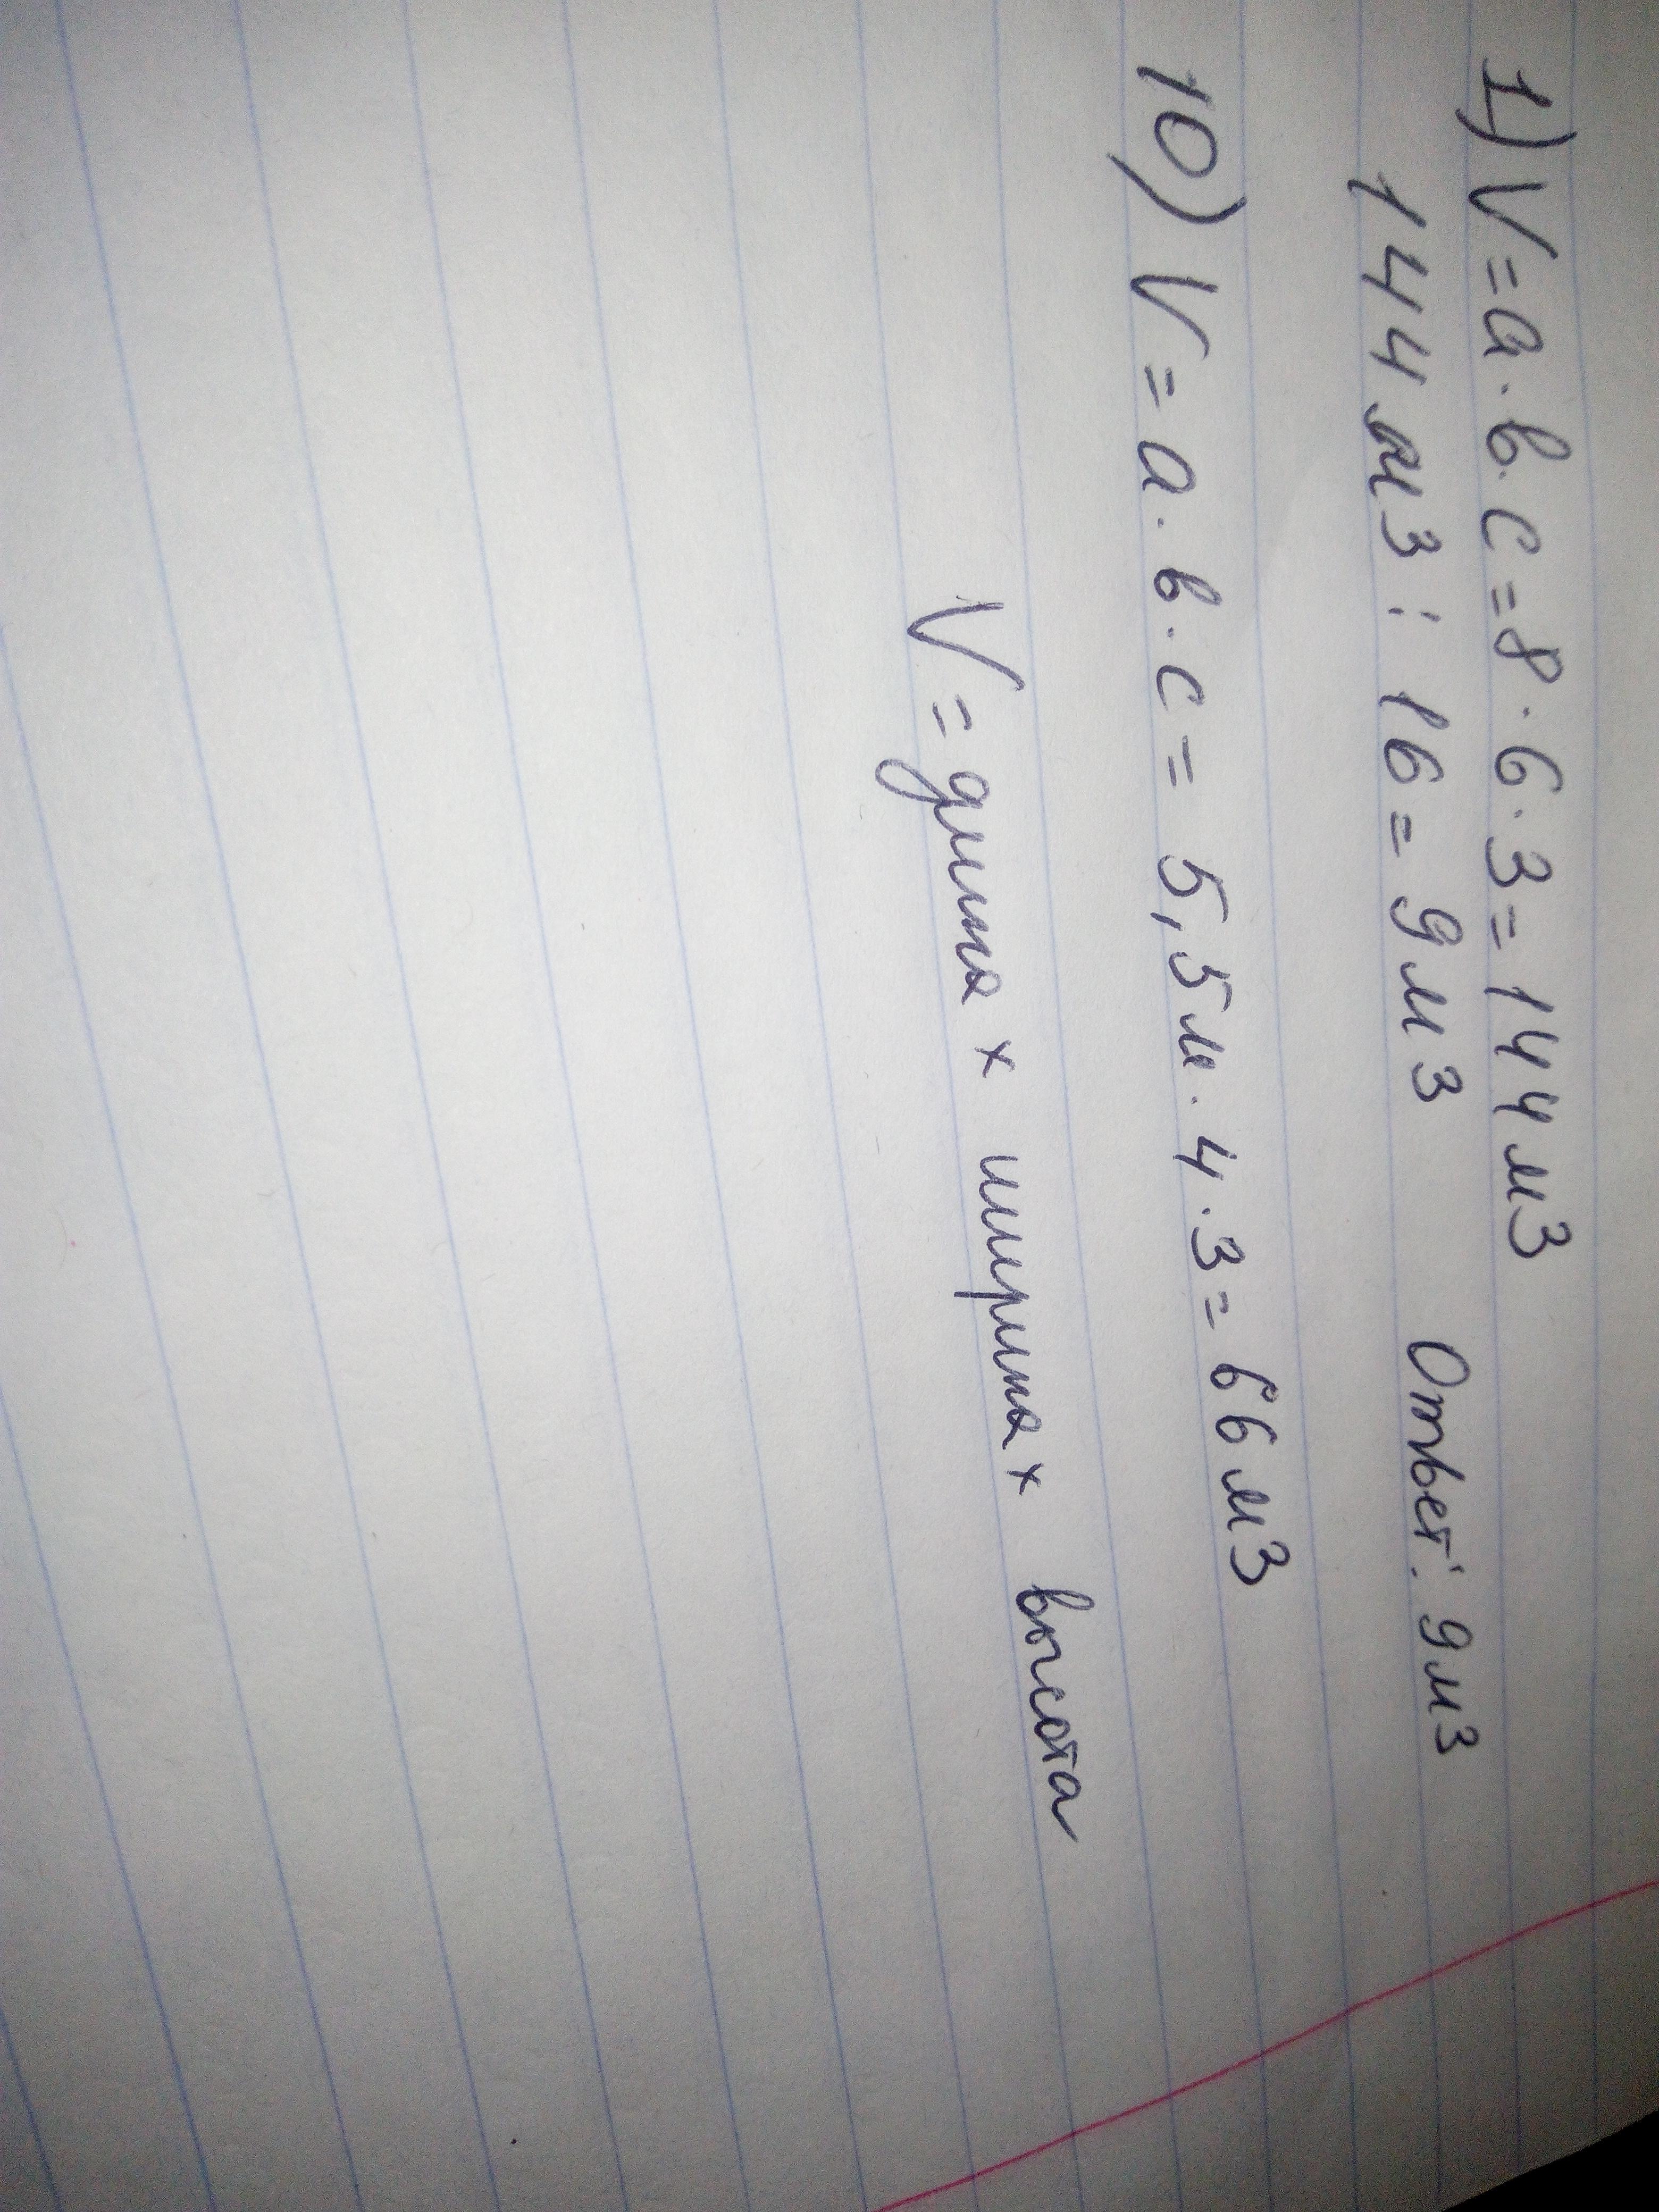 1) V = a · в · c = 8 · 6 · 3 = 144 м3
144 м3 : 16 = 9 м3 Ответ: 9 м3
10) V = a · в · c = 5,5 м · 4 · 3 = 66 м3
V = длина × ширина × высота